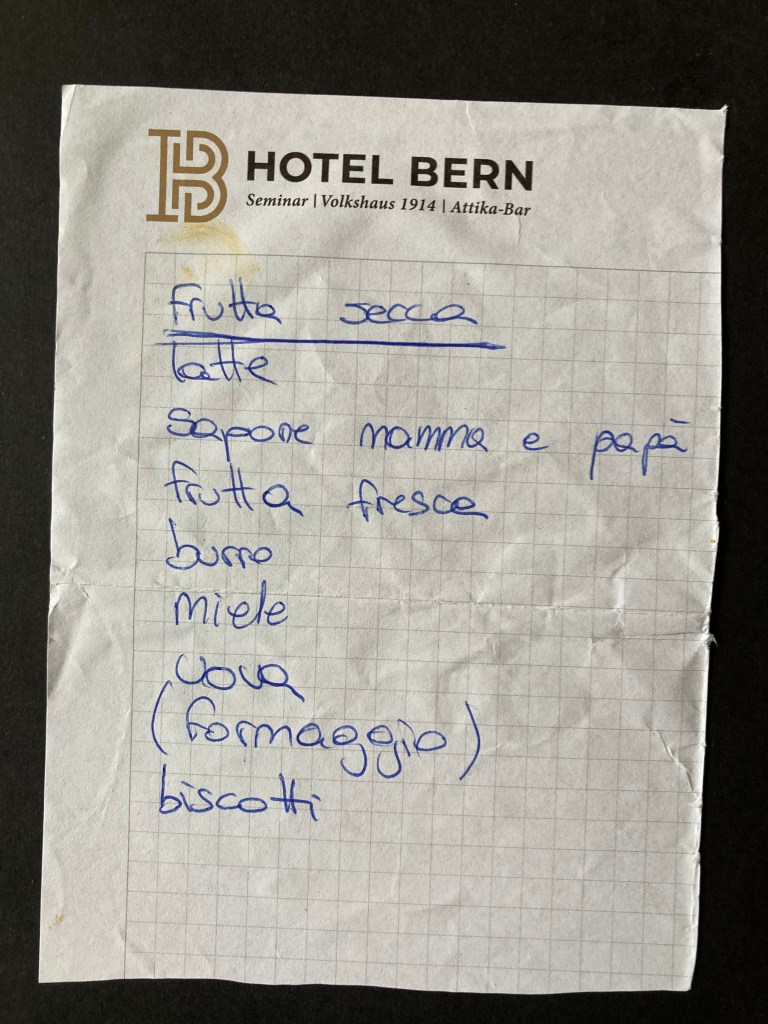 HOTEL BERN
Seminar | Volkshaus 1914 | Attika-Bar
frutta secca
latte
sapone mamma e papà
frutta fresca
burro
miele
uova
(formaggio)
biscotti